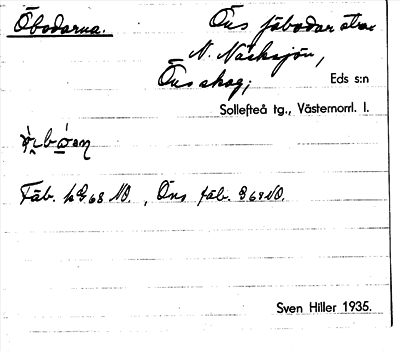 Öbodarna. Öns fäbodar
N. Näcksjön,
Öns skog; Eds s:n
Sollefteå tg., Västernorrl. l.
Fäb. på G. 68 NO., Öns fäb. G 68 NO.
Sven Hiller 1935.